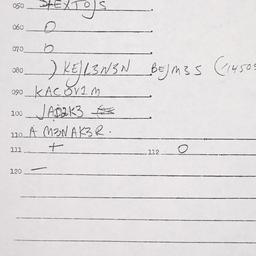 050 STEXTO)S
060 O
070 b
080 ) KEJL3N3N BEJM3S (1450
090 KACOV1M
100 JAD2K3
110 A M3NAK3R.
111 + 112 O
120 —